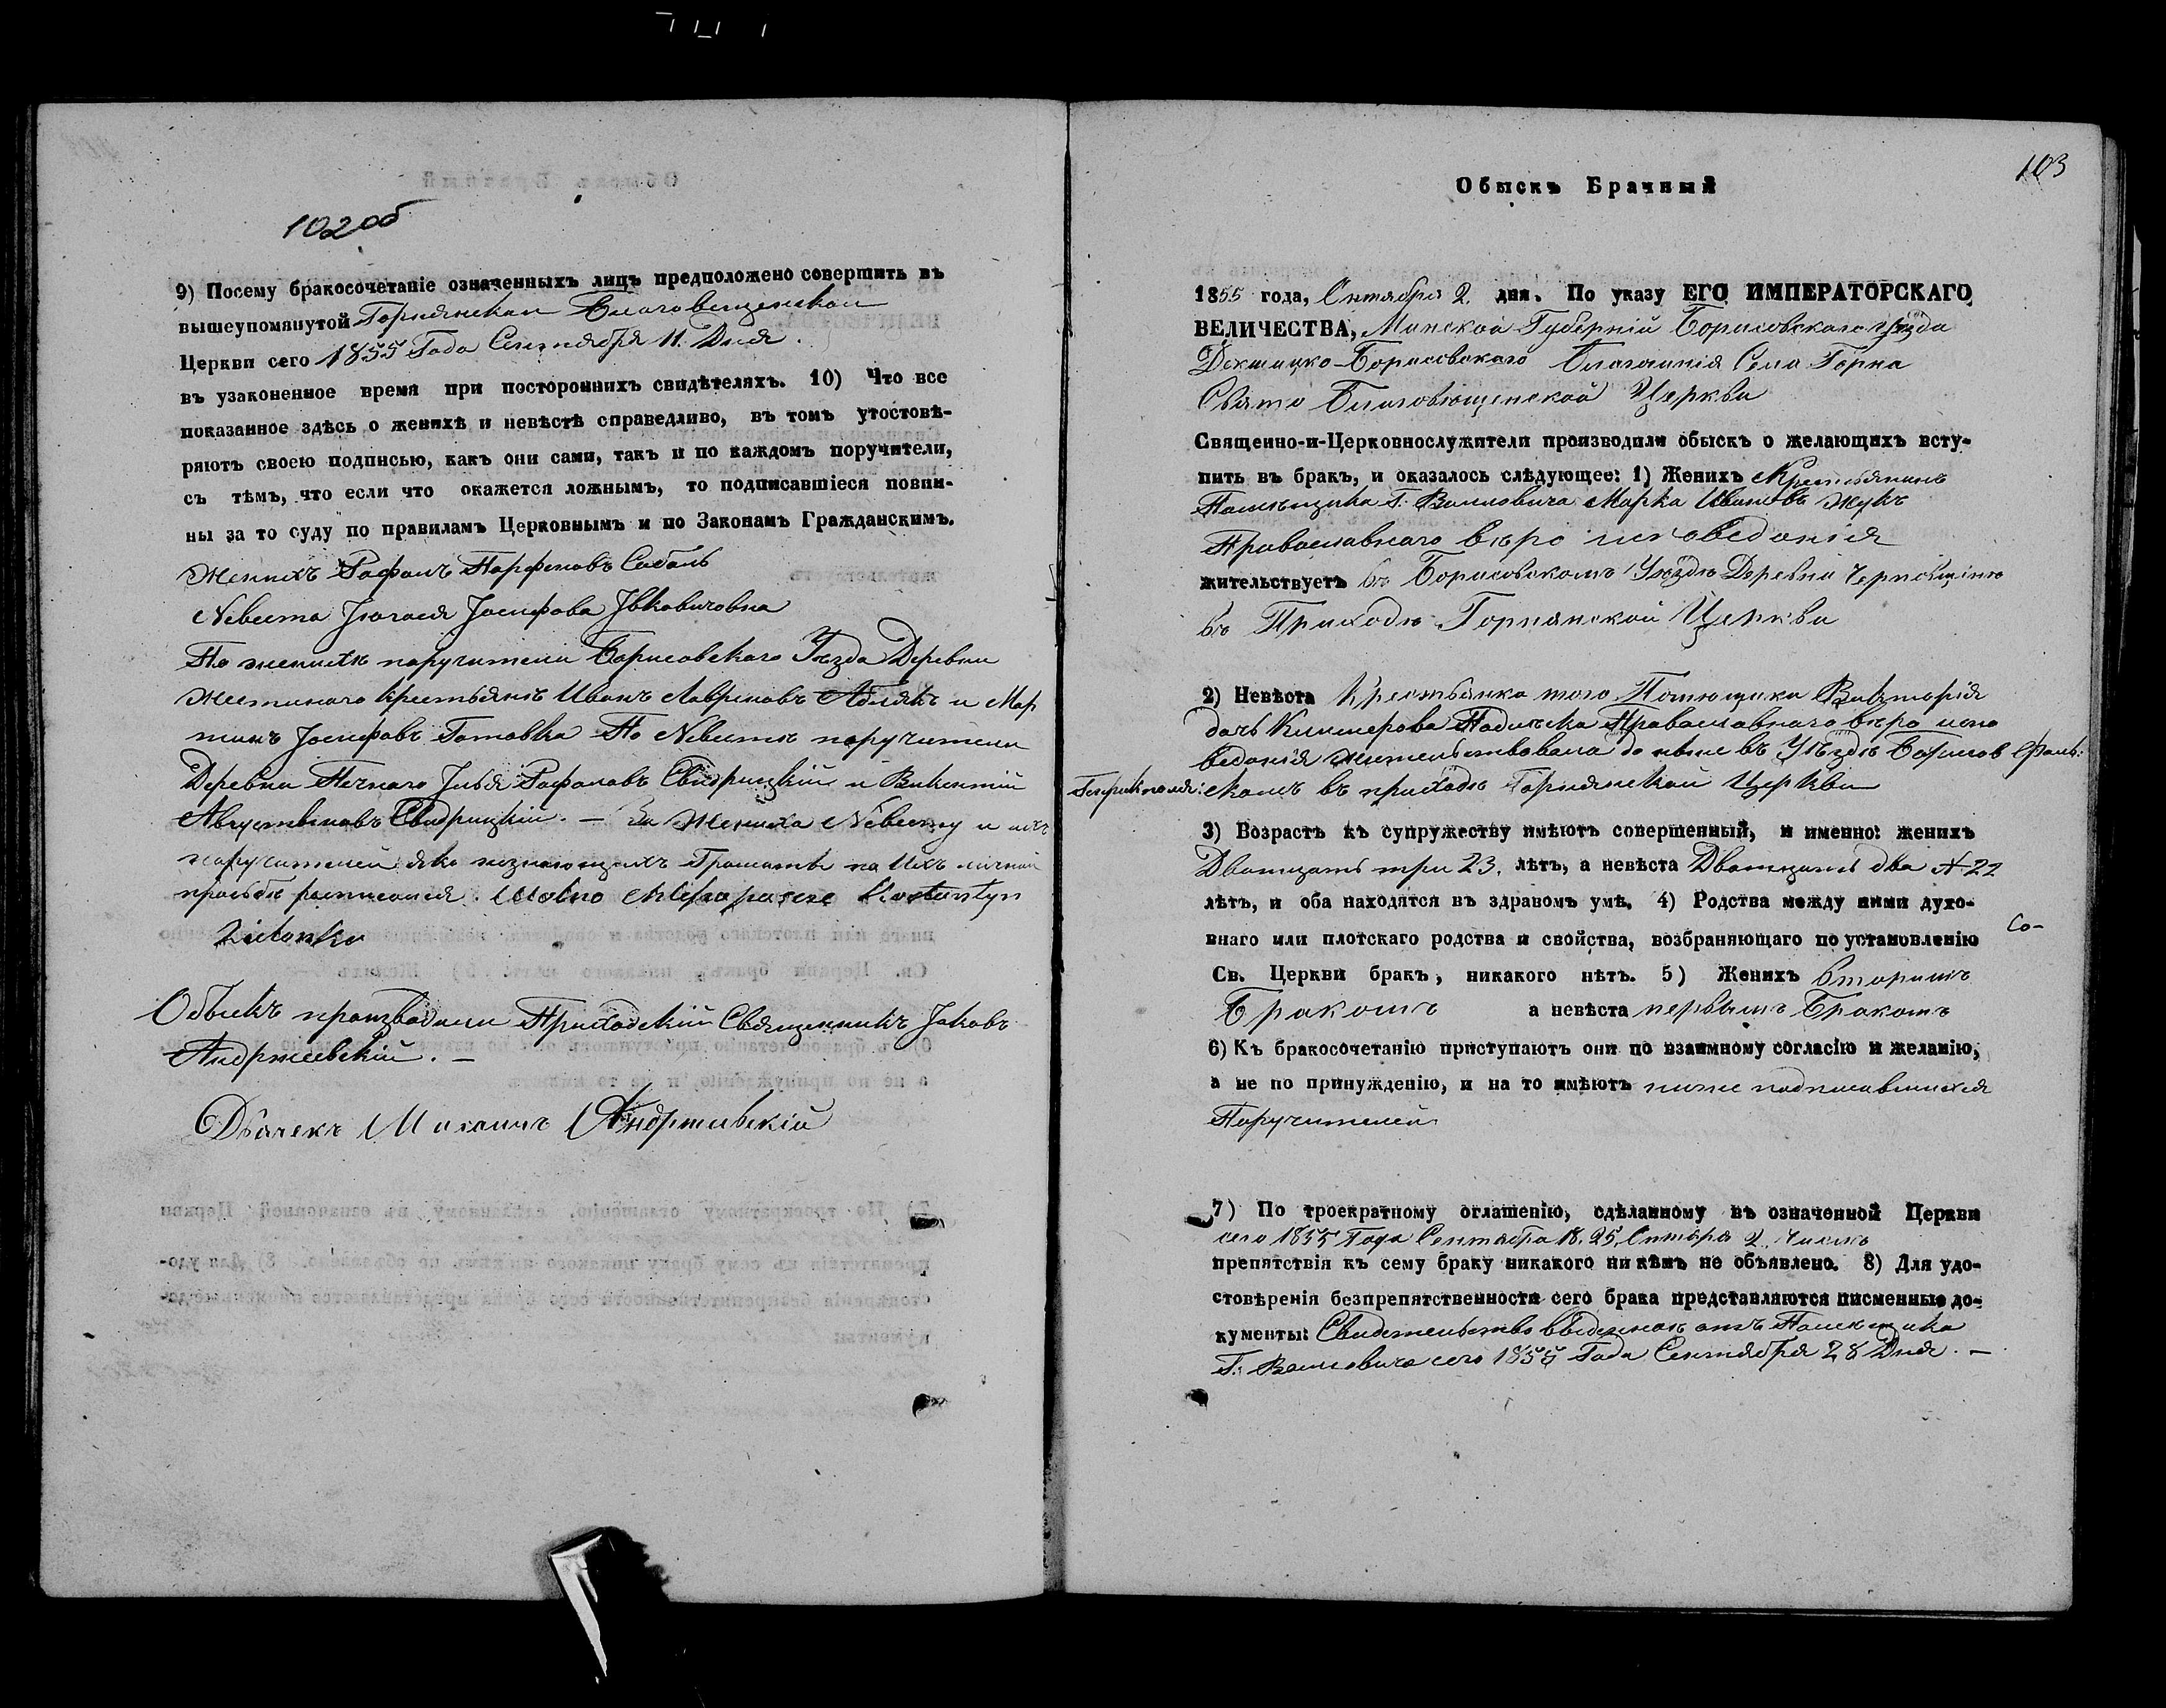 102об
9) Посему бракосочетаніе означенныхъ лицъ предположено совершить въ
вышеупомянутой Горнянской Благовещенской
Церкви сего 1855 Года Сентября 11. Дня.
въ узаконенное время при постороннихъ свидѣтеляхъ. 10) Что все
показанное здѣсь о женихѣ и невѣстѣ справедливо, въ томъ утостовѣ-
ряютъ своею подписью, какъ они сами, такъ и по каждомъ поручители,
съ тѣмъ, что если что окажется ложнымъ, то подписавшіеся повин-
ны за то суду по правиламъ Церковнымъ и по Законамъ Гражданскимъ.
Женихъ Рафалъ Парфеновъ Сабаль
Невеста Іосифова
По женихѣ поручители Борисовскаго Уезда Деревни
крестьянѣ Иванъ Лавреновъ и Мар
тинъ Іосифовъ Готовка По Невестѣ поручители
Деревни Илья Рафаловъ Свидрицкій и Викентій
Августиновъ Свидрицкій. — За Жениха Невесту и ихъ
поручителей яко незнающихъ Грамоты по ихъ личной
прозьбѣ росписался
Обыскъ производили Приходскій Священникъ Іаковъ
Андржеевскій. —
Дьячекъ Михаилъ Андржеевскій
103
Обыскъ Брачный
1855 года, Октября 2. дня. По указу ЕГО ИМПЕРАТОРСКАГО
ВЕЛИЧЕСТВА, Минской Губерніи Борисовскаго Уѣзда
Докшицко-Борисовскаго Благочинія Села Горна
Свято Благовѣщенской Церкви
Священно-и-Церковнослужители производили обыскъ о желающихъ всту-
пить въ бракъ, и оказалось слѣдующее: 1) Женихъ Крестьянинъ
Помѣщика Г. Воловича Марка Ивановъ Жукъ
Православнаго вѣро исповеданія
жительствуетъ въ Борисовскомъ Уѣздѣ Деревни
въ Приходѣ Горнянской Церкви
2) Невѣста Крестьянка того Помѣщика Викторія
дочь Православнаго вѣро испо
веданія жительствовала до ныне въ Уѣздѣ Борисов Фоль:
скомъ въ приходѣ Горнянской Церкви
3) Возрастъ къ супружеству имѣютъ совершенный, и именно: женихъ
Дватцать три 23. лѣтъ, а невѣста Дватцать два 22
лѣтъ, и оба находятся въ здравомъ умѣ. 4) Родства между ними духо-
внаго или плотскаго родства и свойства, возбраняющаго по установленію Со-
Св. Церкви бракъ, никакого нѣтъ. 5) Женихъ вторымъ
Бракомъ а невѣста первымъ Бракомъ
6) Къ бракосочетанію приступаютъ они по взаимному согласію и желанію,
а не по принужденію, и на то имѣютъ ниже подписавшихся
Поручителей
7) По троекратному оглашенію, сдѣланному въ означенной Церкви
сего 1855 Года Сентября 18. 25. Октября 2. Числѣ
препятствія къ сему браку никакого никѣмъ не объявлено. 8) Для удо-
стовѣренія безпрепятственности сего брака представляются писменные до-
кументы: Свидетельство выданное отъ Помѣщика
Г. Воловича сего 1855 Года Сентября 28 Дня. —